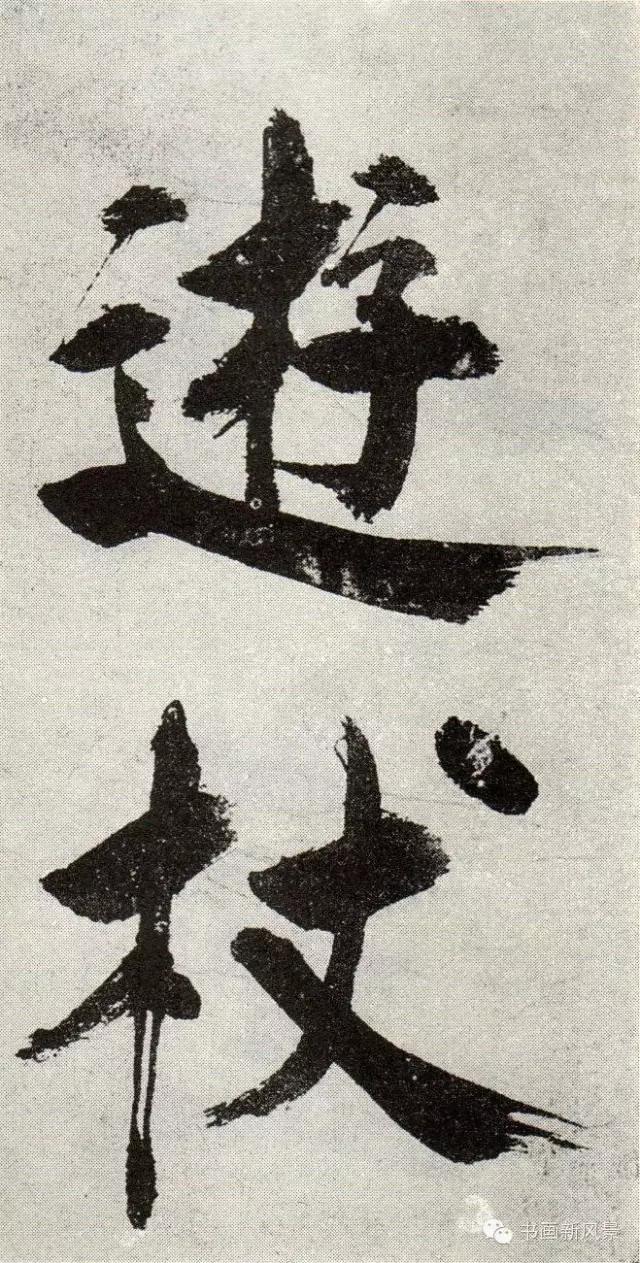 遊
杖
书画新风景